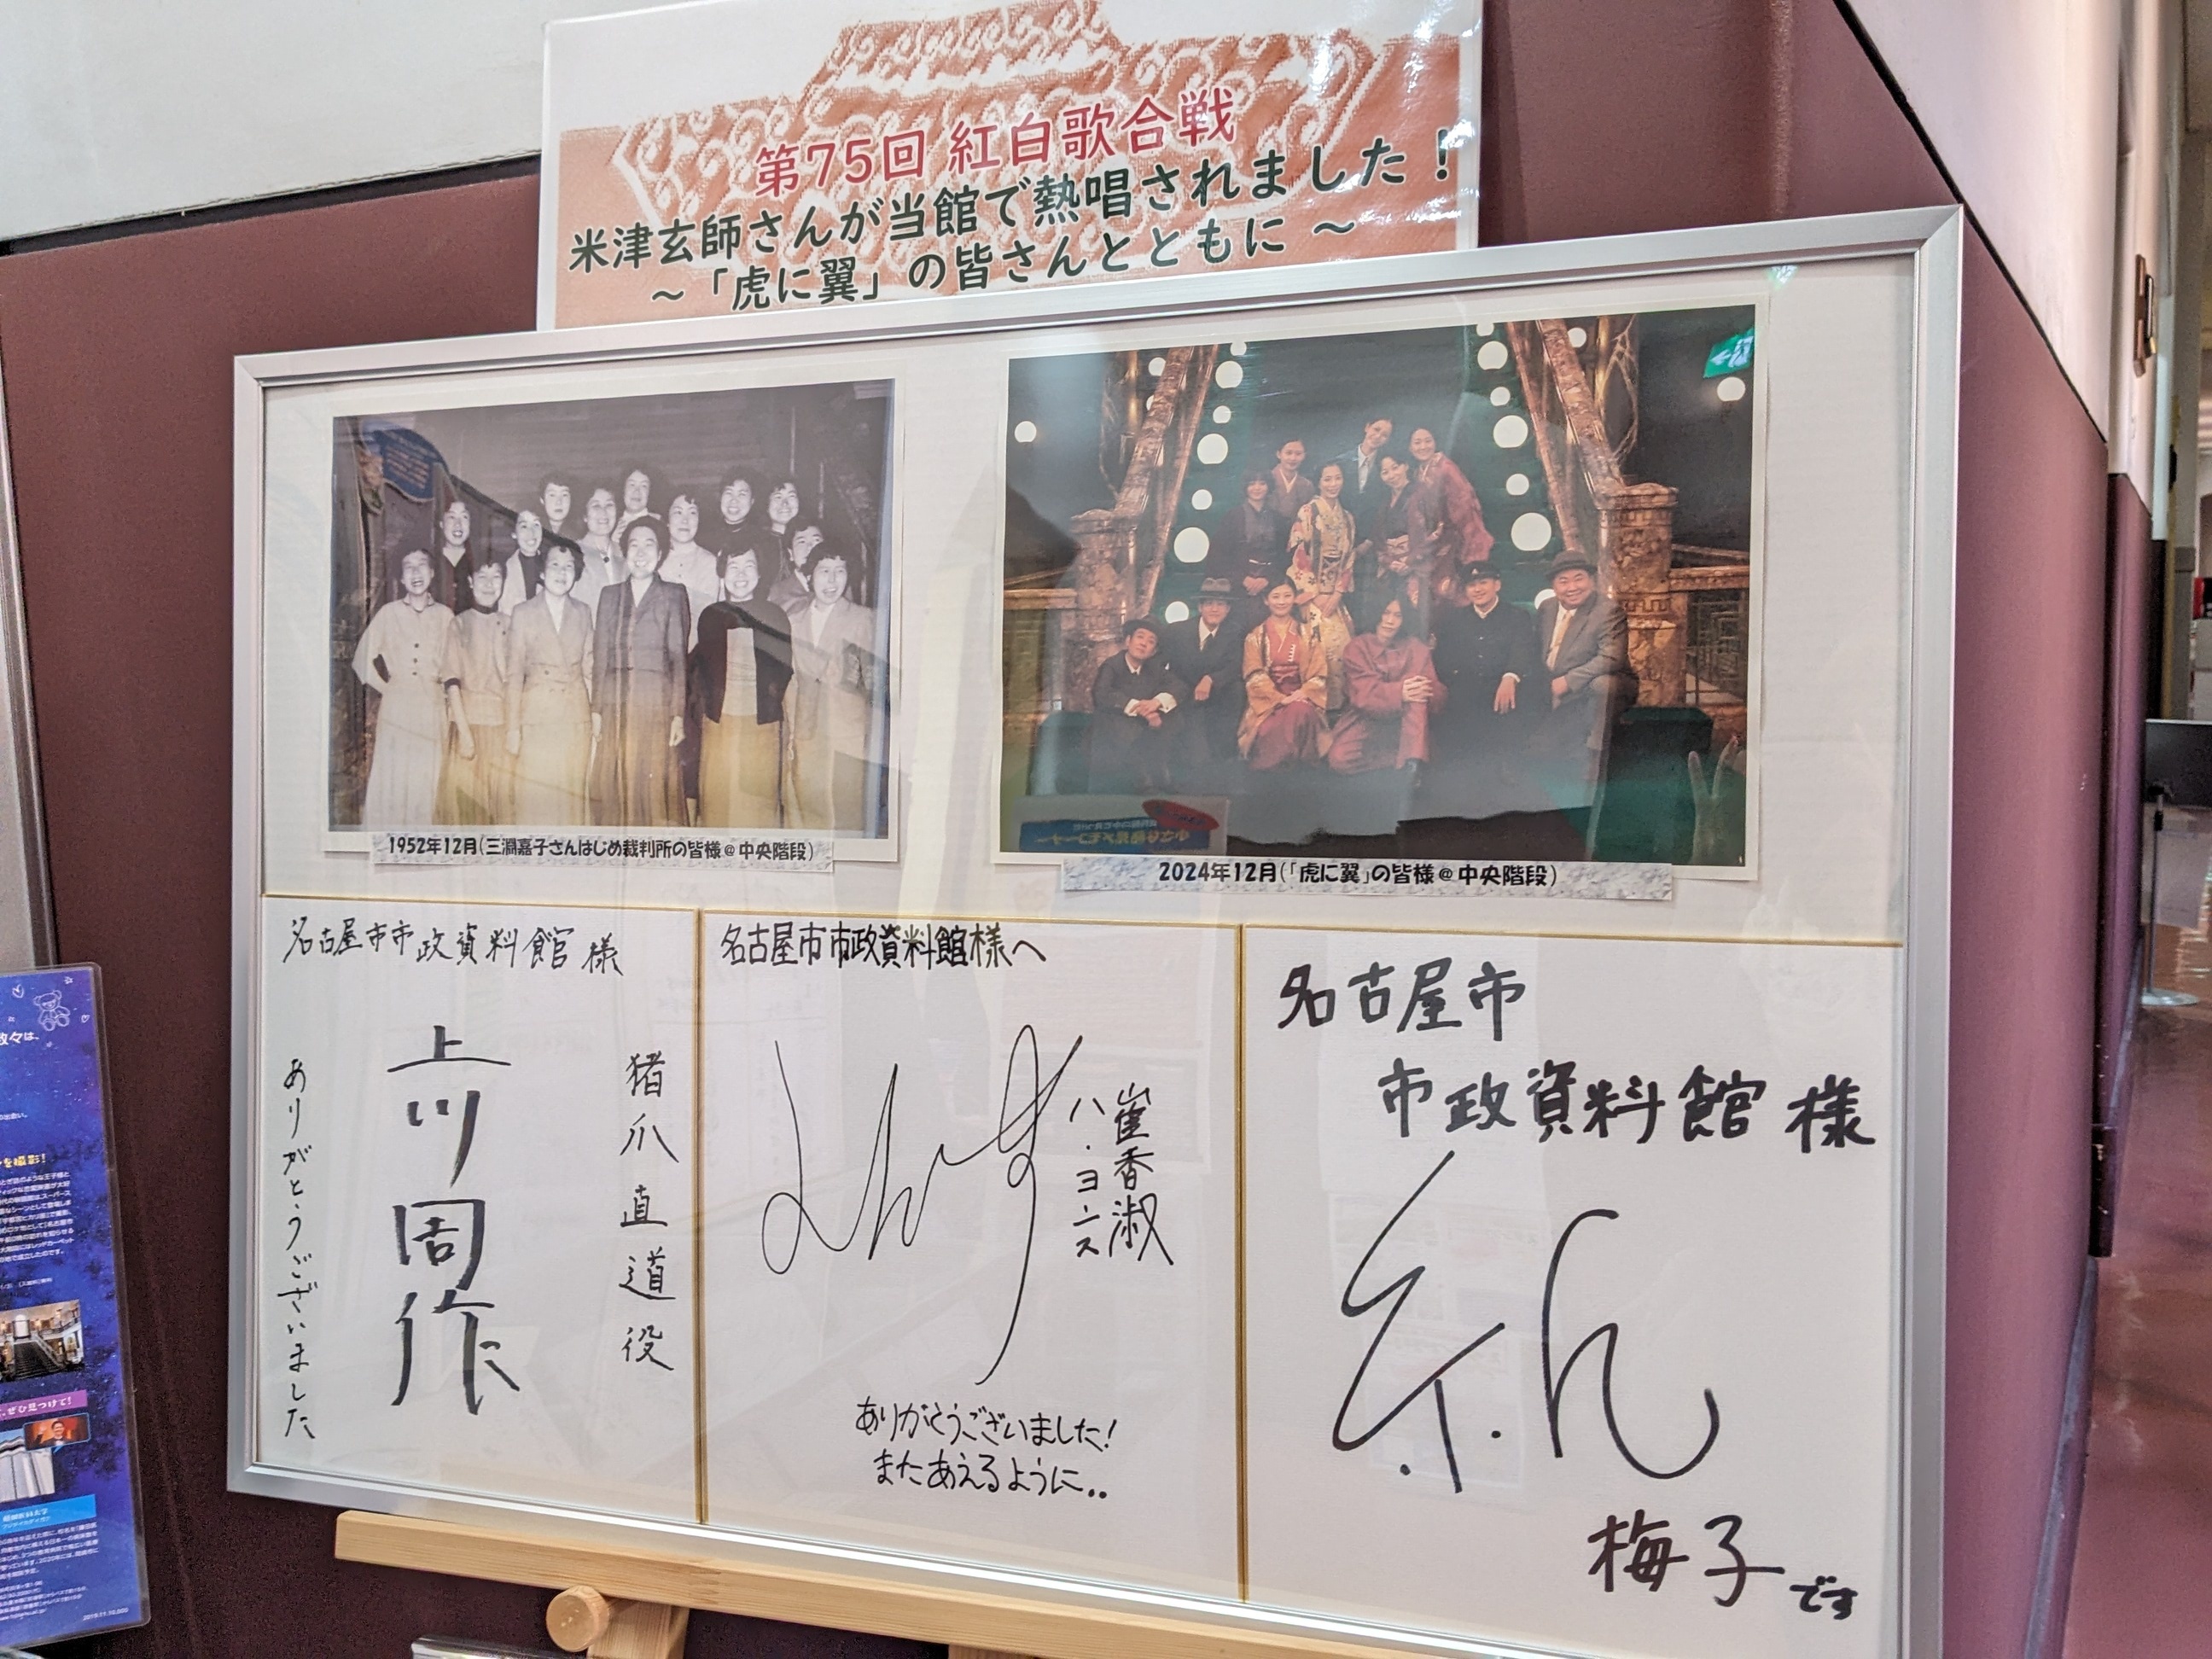 第75回 紅白歌合戦
米津玄師さんが当館で熱唱されました！
～「虎に翼」の皆さんとともに～
1952年12月(三淵嘉子さんはじめ裁判所の皆様@中央階段)
2024年12月(「虎に翼」の皆様@中央階段)
名古屋市市政資料館様
猪爪直道役
上川周作
ありがとうございました
名古屋市市政資料館様へ
崔香淑
ハ・ヨンス
ありがとうございました!
またあえるように..
名古屋市
市政資料館様
梅子です
数々は、
を撮影!
ぜひ見つけて!
2019.11.10,000